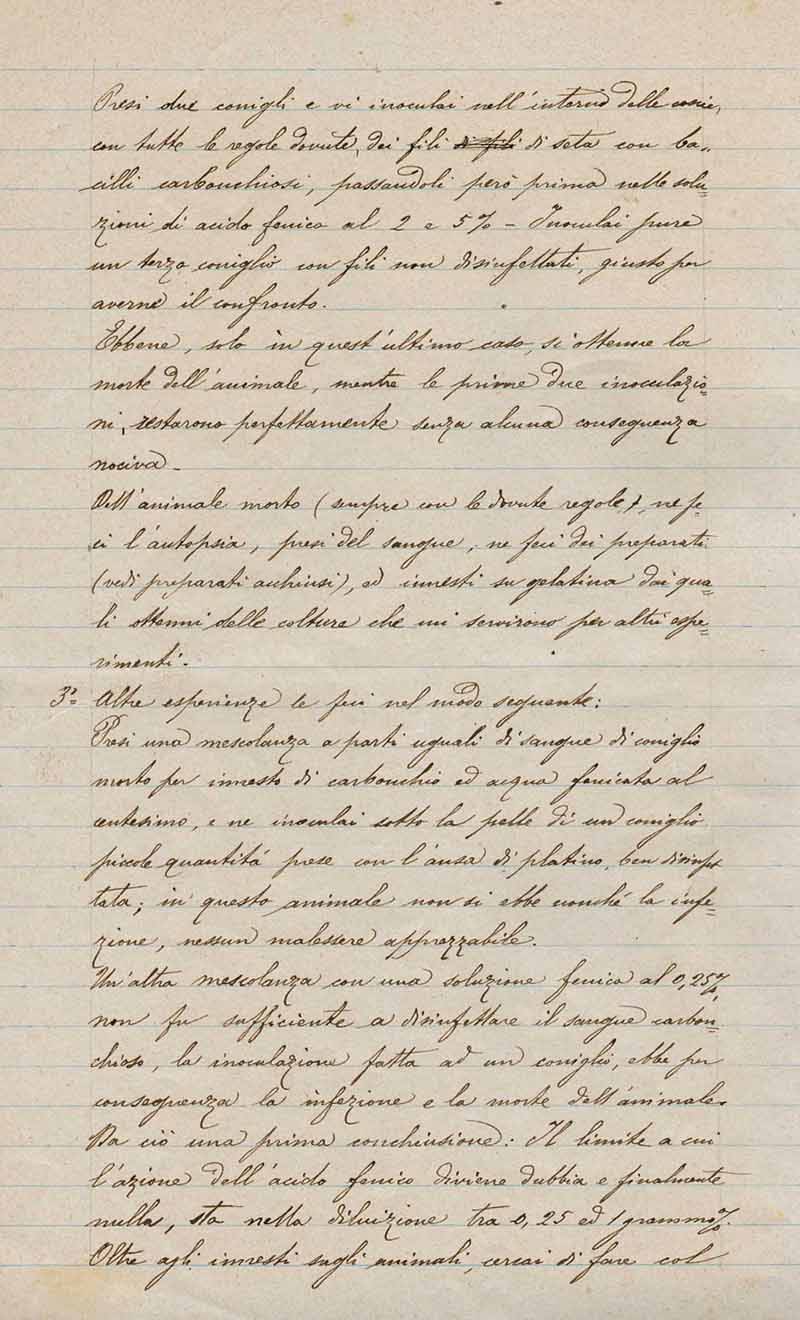 Presi due conigli e vi inoculai nell'interno delle coscie,
con tutte le regole dovute, dei fili di fili di seta con ba„
cilli carbonchiosi, passandoli però prima nelle solu=
zioni di acido fenico al 2 e 5% – Inoculai pure
un terzo coniglio con fili non disinfettati, giusto per
averne il confronto.
Ebbene, solo in quest'ultimo caso, si ottenne la
morte dell'animale, mentre le prime due inoculazio=
ni, restarono perfettamente senza alcuna conseguenza
nociva –
Dell'animale morto (sempre con le dovute regole), ne fe=
ci l'autopsia, presi del sangue, ne feci dei preparati
(vedi preparati acchiusi), ed innesti su gelatina dai qua=
li ottenni delle colture che mi servirono per altri espe=
rimenti.
3º= Altre esperienze le feci nel modo seguente:
Presi una mescolanza a parti uguali di sangue di coniglio
morto per innesto di carbonchio ed acqua fenicata al
centesimo, e ne inoculai sotto la pelle di un coniglio
piccole quantitá prese con l'ansa di platino, ben disinfet
tata; in questo animale non si ebbe nonché la infe=
zione, nessun malessere apprezzabile.
Un'altra mescolanza con una soluzione fenica al 0,25%
non fu sufficiente a disinfettare il sangue carbon=
chioso, la inoculazione fatta ad un coniglio, ebbe per
conseguenza la infezione e la morte dell'animale.
Da ciò una prima conchiusione: Il limite a cui
l'azione dell'acido fenico diviene dubbia e finalmente
nulla, sta nella diluizione tra 0,25 ed 1 grammo%.
Oltre agli innesti sugli animali, cercai di fare col